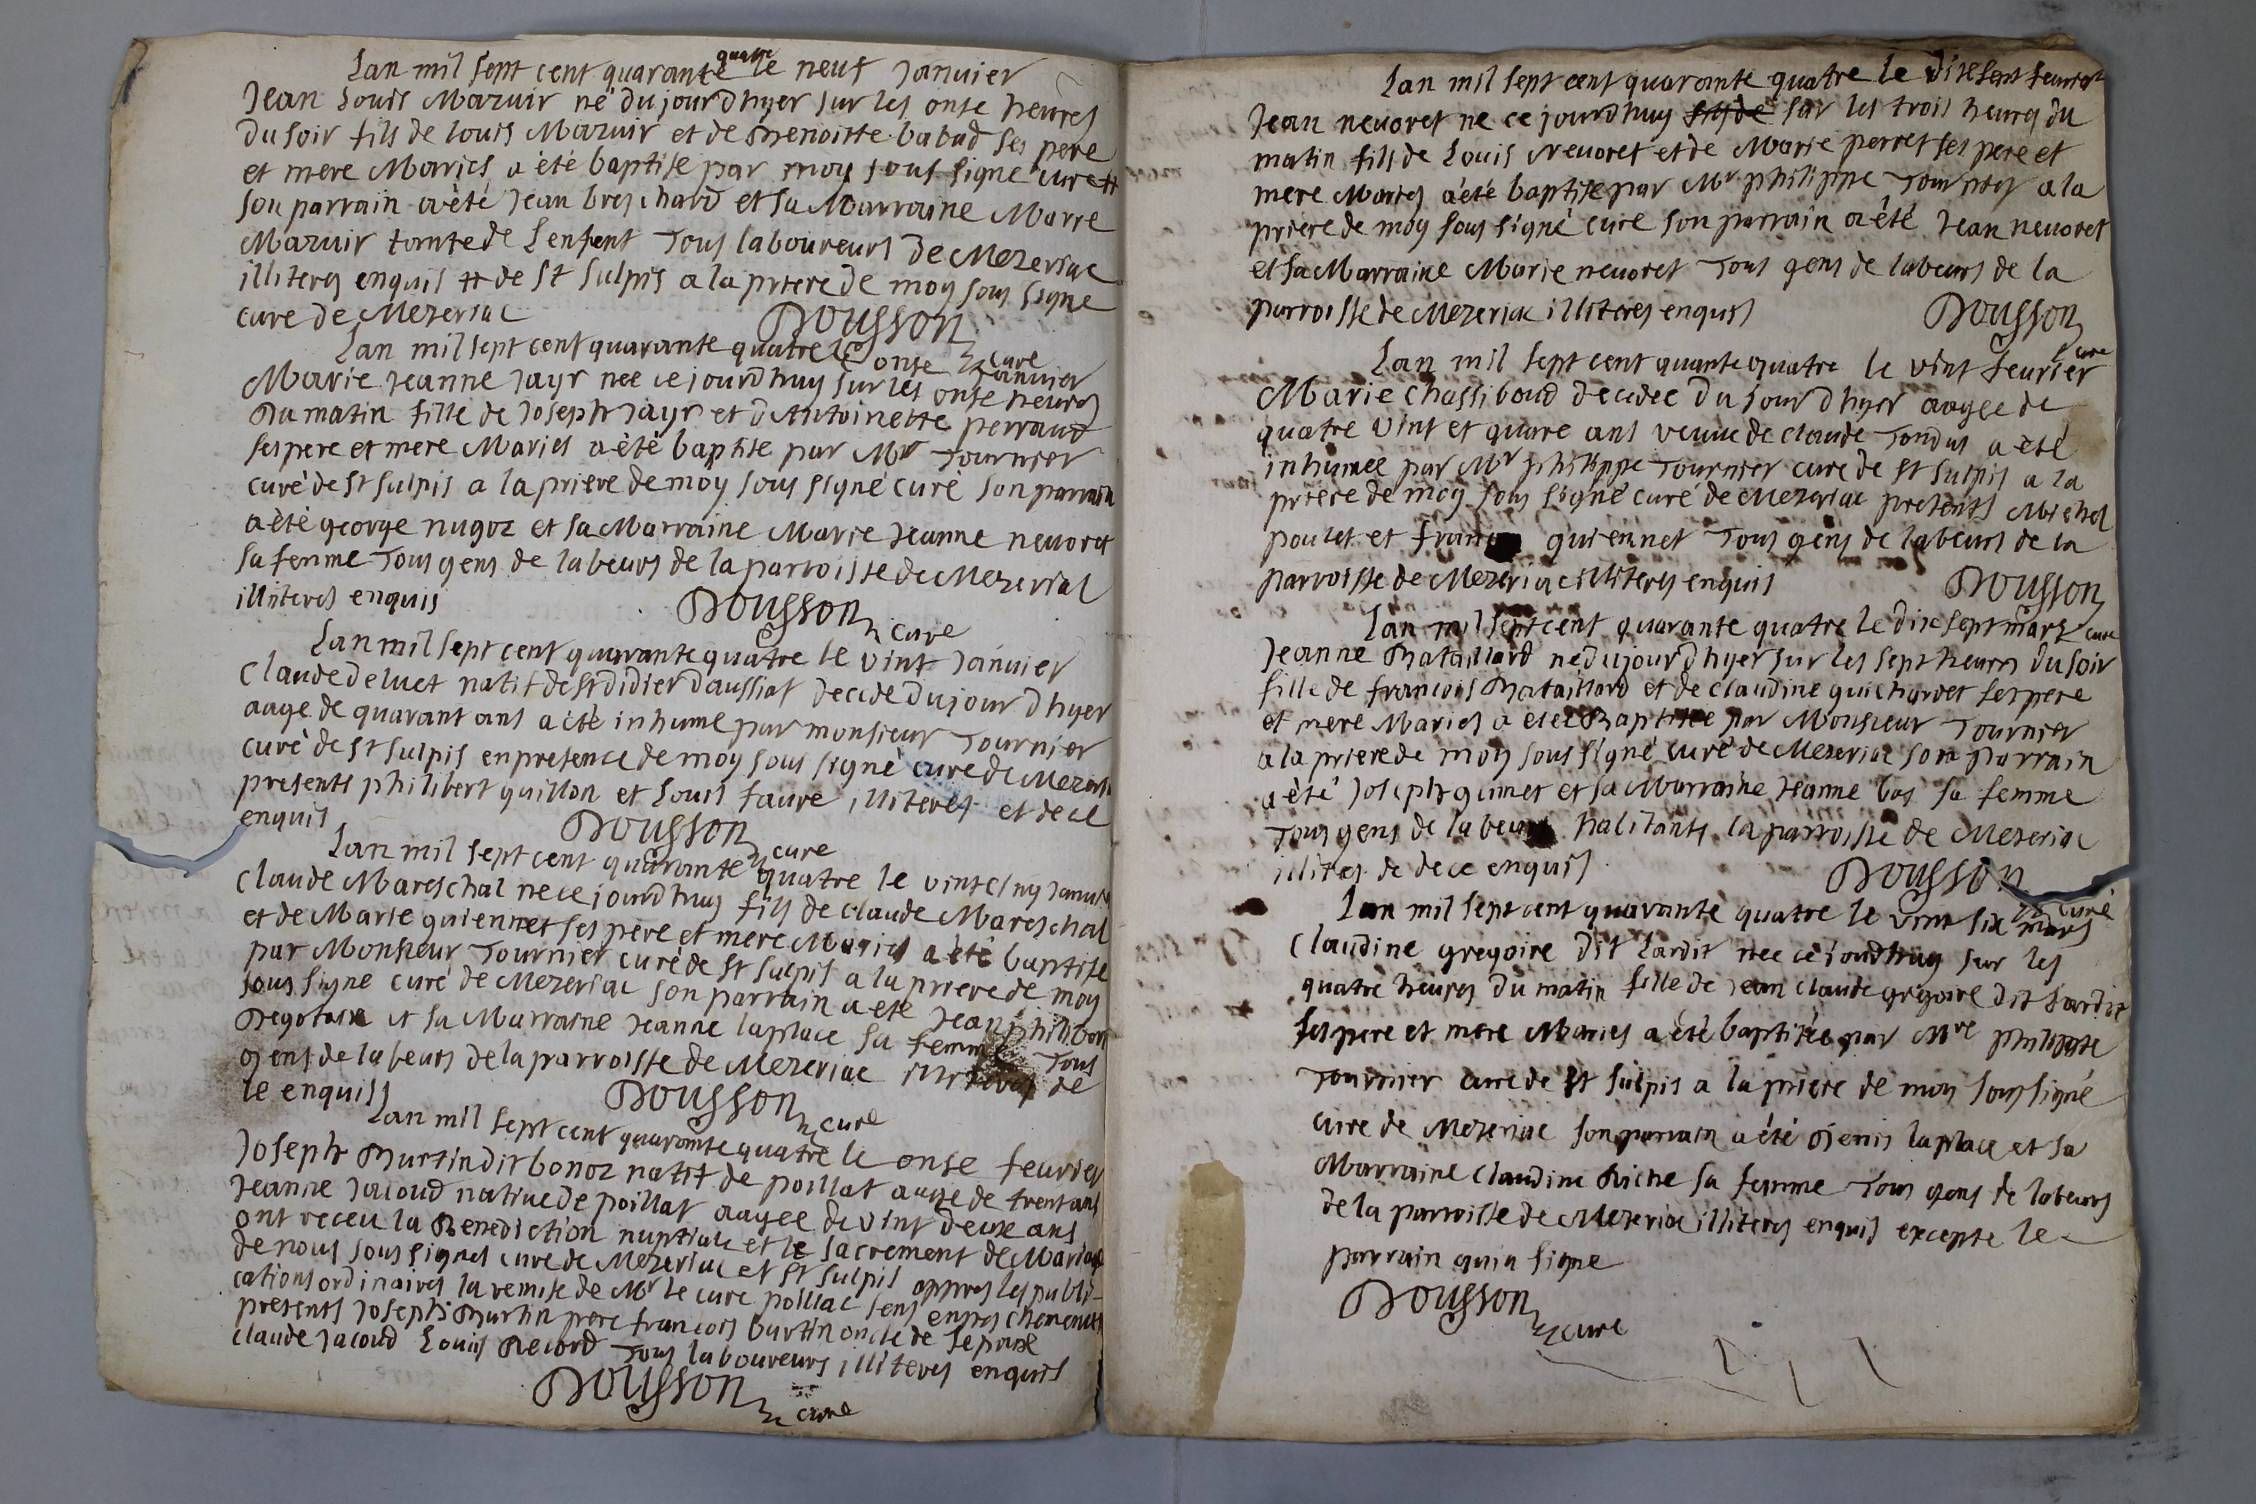 Lan mil sept cent quarante quatre le neuf Janvier
Jean Louis Mazuir né du jour dhyer sur les onse heures
du soir fils de louis Mazuir et de Benoitte babad ses pere
et mere Maries a été baptise par moy sous signe curé #
son parrain a été Jean breschard et sa Marraine Marie
Mazuir tante de Lenfent Tous laboureurs de Mezeriac
illiteres enquis # de St Sulpis a la priere de moy sous signe
cure de Mezeriac Bousson cure
Lan mil sept cent quarante quatre le onse Janvier
Marie Jeanne Jayr nee ce jourdhuy sur les onse heures
du matin fille de Joseph Jayr et dAntoinette perraud
ses pere et mere Maries a été baptise par Mr Tournier
curé de St Sulpis a la priere de moy sous signé curé son parrain
a été george nugoz et sa Marraine Marie Jeanne nevoret
sa femme Tous gens de labeurs de la parroisse de Mezerial
illiteres enquis Bousson cure
Lan mil sept cent quarante quatre le vint Janvier
Claude deluet natif de St didier daussiat decede du jour dhyer
aage de quarant ans a été inhume par monsieur Tournier
curé de St Sulpis en presence de moy sous signé curé de Mezeria
presents philibert guillon et Louis faure illiteres et de ce
enquis Bousson cure
Lan mil sept cent quarante quatre le vint cinq Janvier
Claude Mareschal ne ce jourdhuy fils de claude Mareschal
et de Marie guiennet ses pere et mere Maries a été baptise
par Monsieur Tournier curé de St Sulpis a la priere de moy
sous signe curé de Mezeriac son parrain a été Jean philibert
et sa Marraine Jeanne laplace sa femme Tous
gens de labeurs de la parroisse de Mezeriac illiteres de
ce enquis Bousson cure
Lan mil sept cent quarante quatre le onse feurier
Joseph Burtin dit bonoz natif de poillat aage de trent ans
Jeanne Jacoud native de poillat aagee de vint deux ans
ont receu la Benediction nuptiale et le sacrement de Mariage
de nous sous signes cure de Mezeriac et St Sulpis appres les publi-
cations ordinaires la remise de Mr le cure poillac sens enpeschements
presents Joseph Burtin pere francois burtin oncle de lepoux
claude Jacoud Louis Record Tous laboureurs illiteres enquis
Bousson cure
Lan mil sept cent quarante quatre le dixsept feurier
Jean nevoret ne ce jourdhuy sur les trois heures du
matin fils de Louis Nevoret et de Marie perret ses pere et
mere Maries a été baptise par Mr philippe Tournier a la
priere de moy sous signé curé son parrain a été Jean nevoret
et sa Marraine Marie nevoret Tous gens de labeurs de la
parroisse de Mezeriac illiteres enquis Bousson cure
Lan mil sept cent quante quatre le vint feurier
Marie chassiboud decedee du jour dhyer aagee de
quatre vint et quatre ans veuve de claude Tondus a été
inhumee par Mr philippe Tournier cure de St Sulpis a la
priere de moy sous signé curé de Mezeriac presents Michel
poulet et guiennet Tous gens de labeurs de la
parroisse de Mezeriac illiteres enquis Bousson
Lan mil sept cent quarante quatre le dix sept mars cure
Jeanne Bataillard ne du jour dhyer sur les sept heures du soir
fille de francois Bataillard et de claudine guichardet ses pere
et mere Maries a été Baptisee par Monsieur Tournier
a la priere de moy sous signé curé de Mezeriac son parrain
a été Joseph guinet et sa Marraine Jeanne bas sa femme
Tous gens de labeurs habitants la parroisse de Mezeriac
illiteres de de ce enquis Bousson curé
Lan mil sept cent quarante quatre le vint six mars
Claudine gregoire dit Lardit nee ce jourdhuy sur les
quatre heures du matin fille de Jean claude gregoire dit Lardit
ses pere et mere Maries a été baptisée par Mre philippe
Tournier cure de St Sulpis a la priere de moy sous signé
cure de Mezeriac son parrain a été Denis laplace et sa
Marraine Claudine Riche sa femme Tous gens de labeurs
de la parroisse de Mezeriac illiteres enquis excepte le
parrain qui a signe
Bousson cure